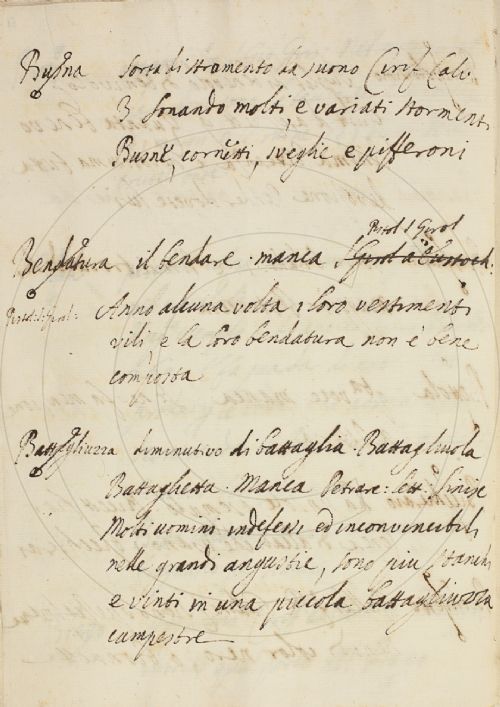 Busna sorta di stromento da suono Cirif. Calv.
3 sonando molti, e variati stormenti
Busne, cornetti, sveglie e pifferoni
Pistol. S. Girol.
Bendatura il bendare. manca S. Girol. a Eustoch.
Pistol. S. Girol: Anno alcuna volta i loro vestimenti
vili, e la loro bendatura non è bene
composta
Battagliuzza diminutivo di battaglia. Battagliuola
Battaglietta. Manca Petrarc: lett: Sinise
Molti uomini indefessi ed inconvincibili
nelle grandi angustie, sono piu stanchi
e vinti in una piccola battagliuzza
campestre